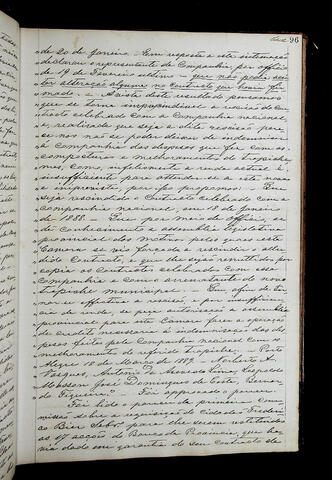 96
de 20 de Janeiro. — Em resposta a esta intimação
declarou o representante da Companhia, por officio
de 19 de Fevereiro ultimo — que não podia acei-
tar alteração alguma no Contracto que havia fir-
mado —. Á vista deste resultado pensamos
que se torna imprescindivel a rescisão do Con-
tracto celebrado com a Companhia nacional,
e, realizada que seja a dita rescisão para
se nos não se poder deixar de indemnisar
á Companhia das despezas que fez com as
competencias e melhoramentos do trapiche,
mas, como, infelizmente a renda actual é
insufficiente para attender-se a esta nova
e imprevista, por isso propomos: — Que
seja rescindido o Contracto celebrado com a
companhia nacional, em 18 de Janeiro
de 1888. — Que por meio de officio, se
dê conhecimento á assembléa legislativa
provincial dos motivos pelos quaes esta
Camara se vio forçada a rescindir o allu-
dido Contracto, e que lhe sejão remettidos por
copia os Contractos celebrados com essa
companhia e com o arrematante do novo
trapiche municipal: — Que afim de tor-
nar-se effectiva a rescisão, e por insufficien-
cia de renda, se peça autorisação a assembléa
provincial para esta Camara fazer a operação
de credito necessaria á indemnisação das des-
pezas feitas pela Companhia nacional com os
melhoramentos do referido trapiche. — Porto
Alegre 18 de Março de 1889. — Norberto A.
Vasques. Antonio de Azevedo Lima, Leopoldo
Masson, José Domingues da Costa, Bernar-
do Figueira. — Foi approvado o parecer.
Foi lido o parecer da primeira Com-
missão sobre a requisição do cidadão Frederi-
co Bier Sobr. para lhe serem restituidas
as 57 acções do Banco da Provincia, que ha-
via dado em garantia do seu contracto de